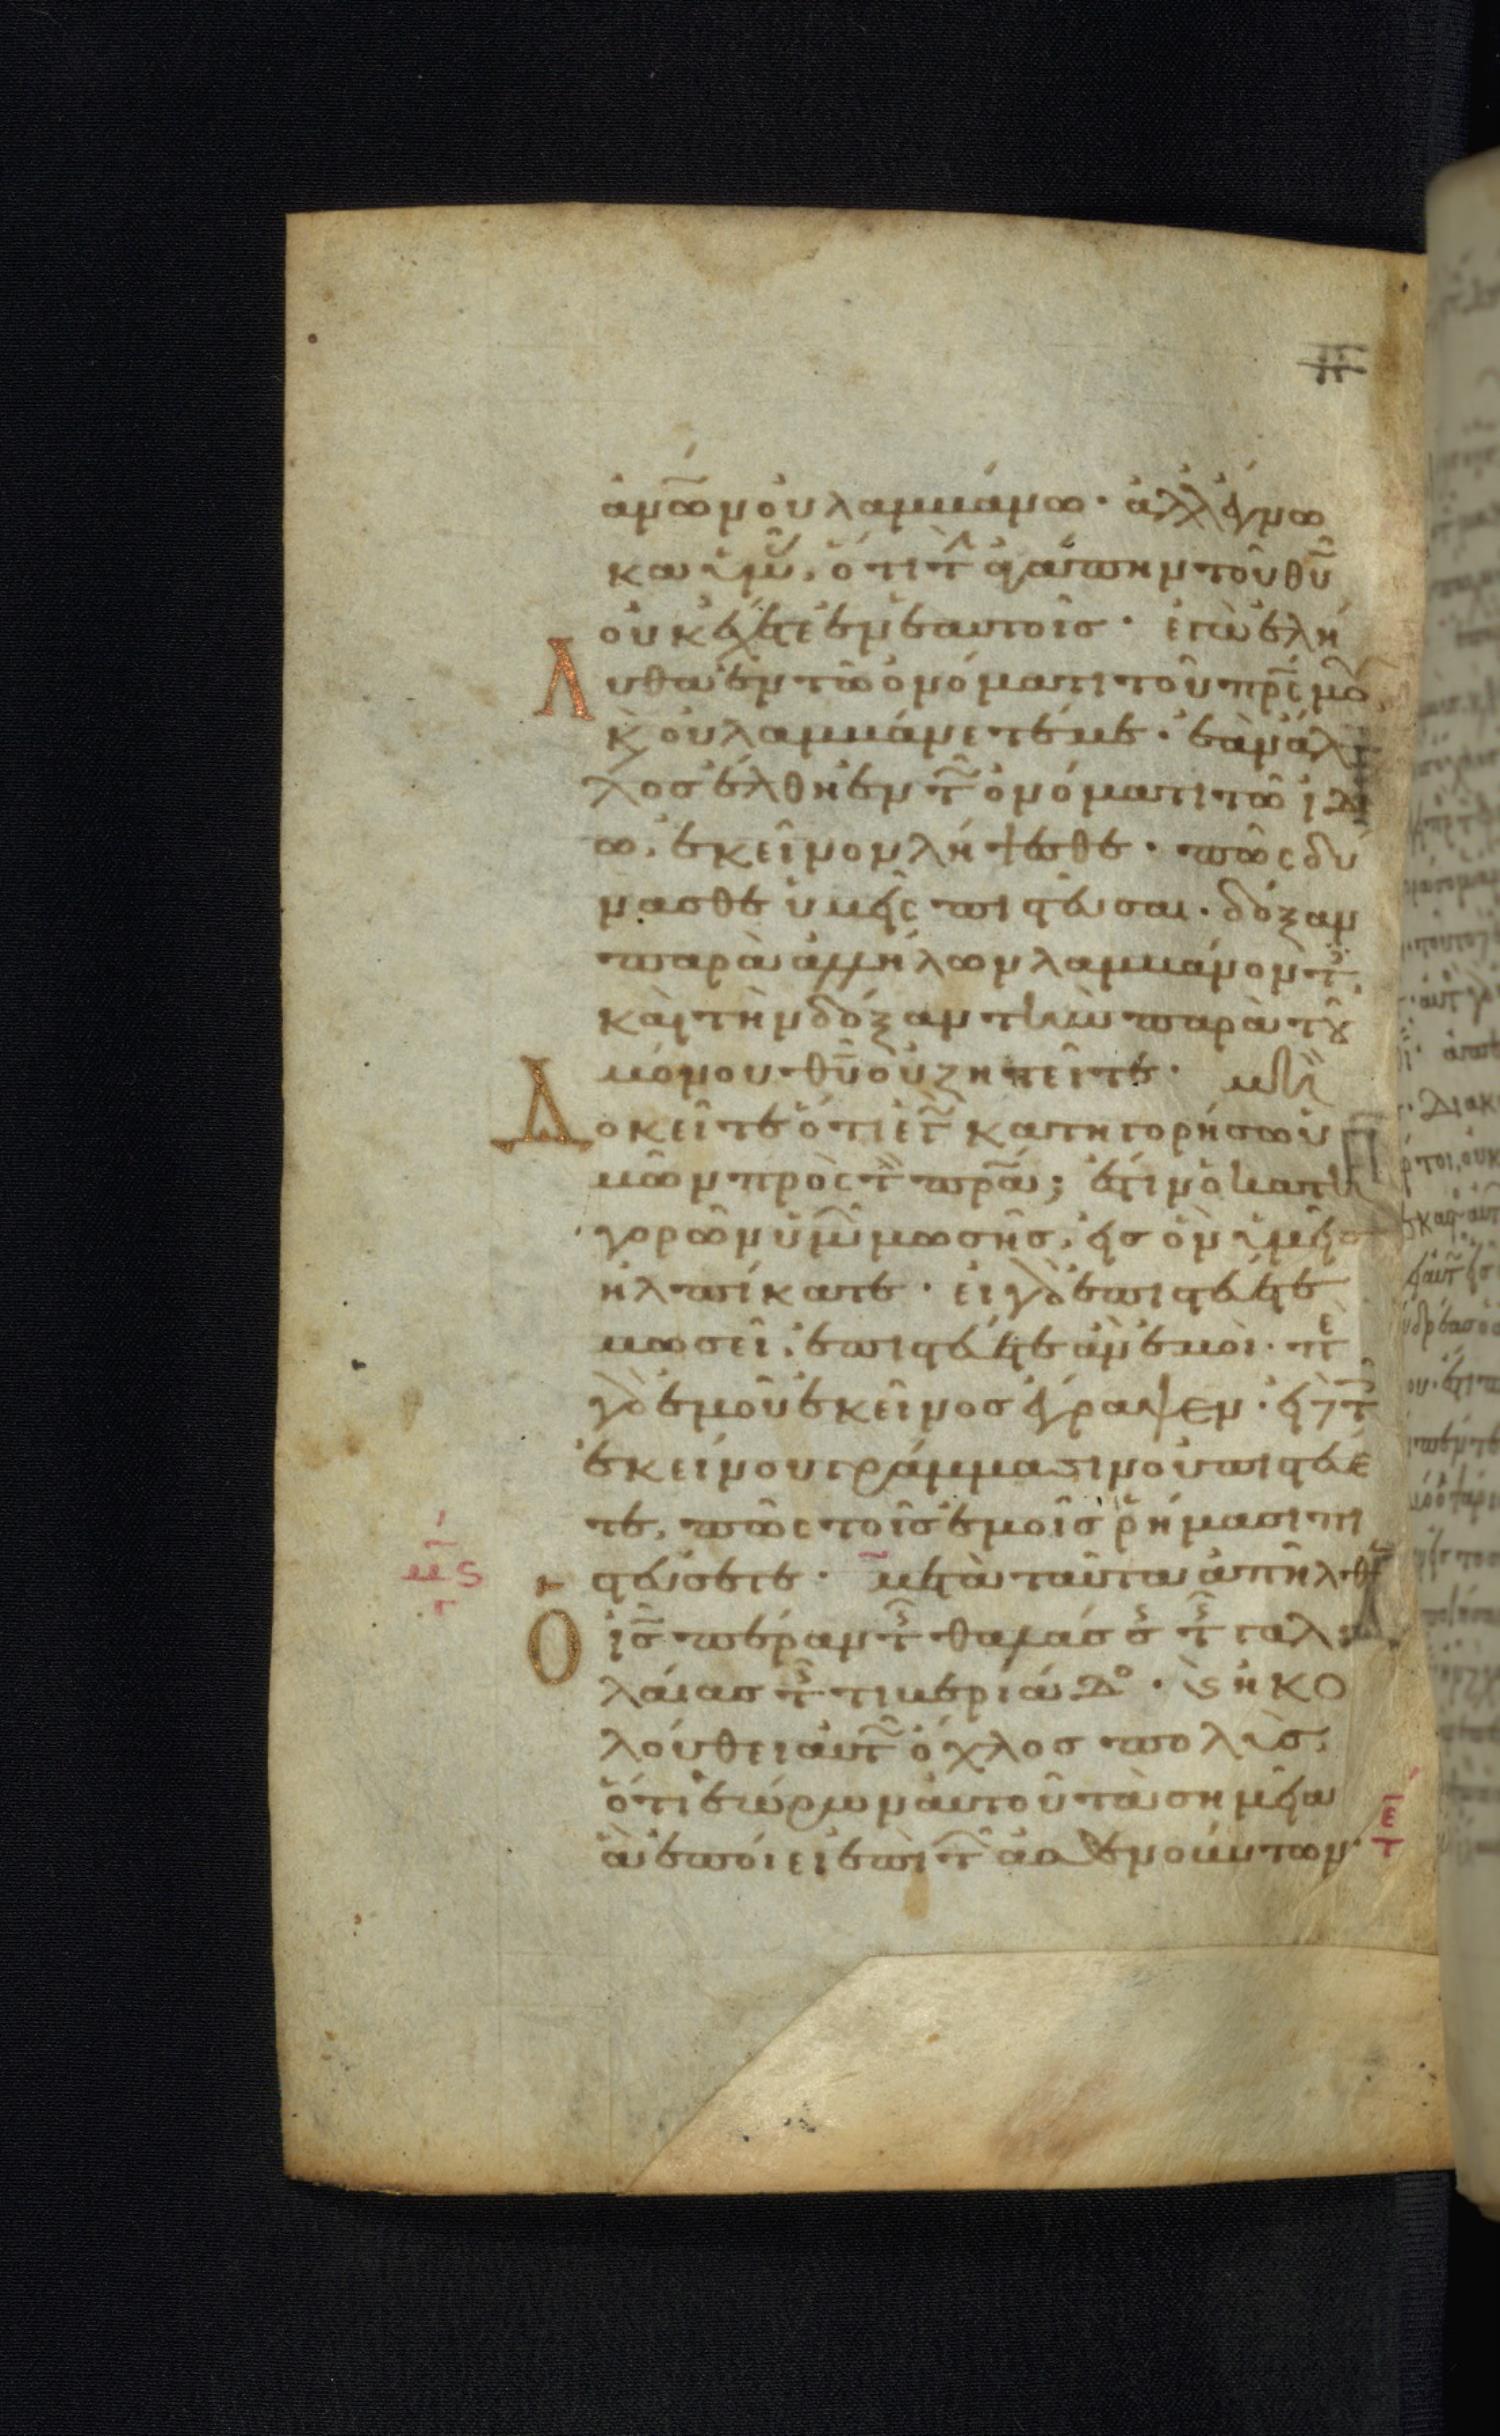 ἀνω̅ν οὐ λαμβάνω· ἀλλ' ἔγνω
κα ὑμ̅, ὅτι τ̅ ἀγάπην τοῦ θ̅υ̅
οὐκ ἔχετε ἐν ἑαυτοῖσ· ἐγὼ ἐλή
λυθα ἐν τῶ ὀνόματι τοῦ π̅ρ̅ς̅ μο̅,
κ̀ οὐ λαμβάνετέ με· ἐὰν ἄλ
λοσ ἔλθη ἐν τ̅ ὀνόματι τῶ ἰδι
ω, ἐκεῖνον λήψεσθε· πῶς δύ
νασθε ὑμεῖς πιστεῦσαι· δόξαν
παρὰ ἀλλήλων λαμβάνοντ̅,
καὶ τὴν δόξαν τὴν παρὰ τοῦ
μόνου θ̅υ̅ οὐ ζητεῖτε· μὴ
Δοκεῖτε ὅτι ἐγ̅ κατηγορήσω ὑ
μῶν πρὸς τ̅ π̅ρ̅α̅; ἔστιν ὁ κατη
γορῶν ὑμῶ̅ν μωσῆσ, εἰσ ὃν ὑμεῖσ
ἠλπίκατε· εἰ γὰρ ἐπιστεύετε
μωσεῖ, ἐπιστεύετε ἂν ἐμοί· πε
γὰρ ἐμοῦ ἐκεῖνοσ ἔγραψεν· εἰ δὲ τ̅
ἐκείνου γράμμασιν οὐ πιστεύε
τε, πῶς τοῖσ ἐμοῖσ ῥήμασι πι
στεύσετε· μετὰ ταῦτα ἀπῆλθ
Ὁ ι̅σ̅ πέραν τ̅ θαλάσσ τ̅ γαλι
λαίασ τ̅ τιβεριάδο· κ̀ ἠκο
λούθει αὐτ̅ ὄχλοσ πολὺσ,
ὅτι ἑώρων αὐτοῦ τὰ σημεῖα
ἃ ἐποίει ἐπὶ τ̅ ἀσθενούντων·